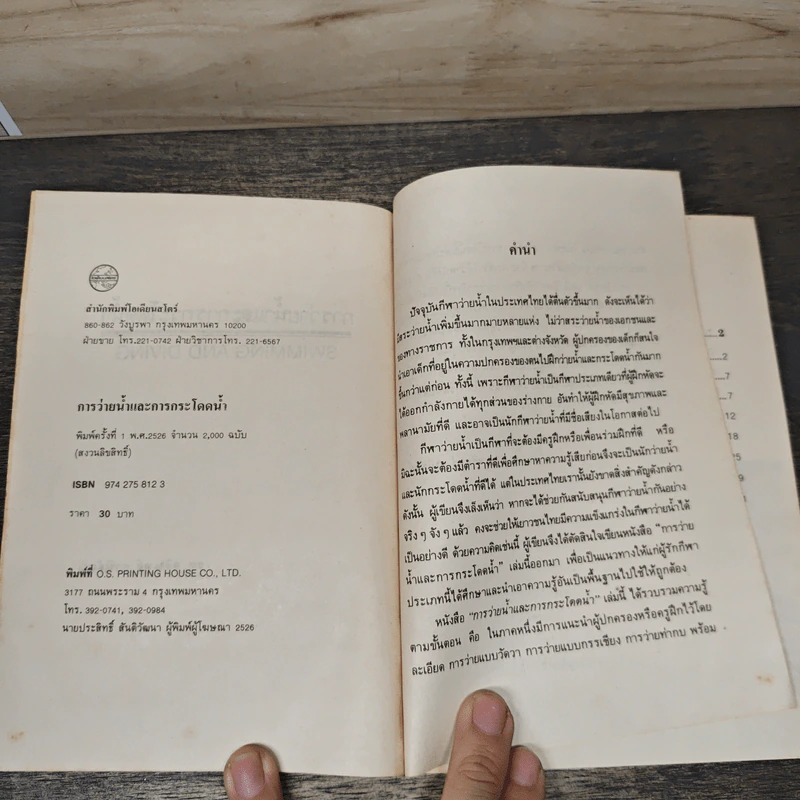 สำนักพิมพ์โอเดียนสโตร์
860-862 วังบูรพา กรุงเทพมหานคร 10200
ฝ่ายขาย โทร.221-0742 ฝ่ายวิชาการโทร. 221-6567
การว่ายน้ำและการกระโดดน้ำ
พิมพ์ครั้งที่ 1 พ.ศ.2526 จำนวน 2,000 ฉบับ
(สงวนลิขสิทธิ์)
ISBN 974 275 812 3
ราคา 30 บาท
พิมพ์ที่ O.S. PRINTING HOUSE CO., LTD.
3177 ถนนพระราม 4 กรุงเทพมหานคร
โทร. 392-0741, 392-0984
นายประสิทธิ์ สันติวัฒนา ผู้พิมพ์ผู้โฆษณา 2526
คำนำ
ปัจจุบันกีฬาว่ายน้ำในประเทศไทยได้ตื่นตัวขึ้นมาก ดังจะเห็นได้ว่า
มีสระว่ายน้ำเพิ่มขึ้นมากมายหลายแห่ง ไม่ว่าสระว่ายน้ำของเอกชนและ
ของทางราชการ ทั้งในกรุงเทพฯและต่างจังหวัด ผู้ปกครองของเด็กก็สนใจ
นำเอาเด็กที่อยู่ในความปกครองของตนไปฝึกว่ายน้ำและกระโดดน้ำกันมาก
ขึ้นกว่าแต่ก่อน ทั้งนี้ เพราะกีฬาว่ายน้ำเป็นกีฬาประเภทเดียวที่ผู้ฝึกหัดจะ
ได้ออกกำลังกายได้ทุกส่วนของร่างกาย อันทำให้ผู้ฝึกหัดมีสุขภาพและ
พลานามัยที่ดี และอาจเป็นนักกีฬาว่ายน้ำที่มีชื่อเสียงในโอกาสต่อไป
กีฬาว่ายน้ำเป็นกีฬาที่จะต้องมีครูฝึกหรือเพื่อนร่วมฝึกที่ดี หรือ
มิฉะนั้นจะต้องมีตำราที่ดีเพื่อศึกษาหาความรู้เสียก่อนจึงจะเป็นนักว่ายน้ำ
และนักกระโดดน้ำที่ดีได้ แต่ในประเทศไทยเรานั้นยังขาดสิ่งสำคัญดังกล่าว
ดังนั้น ผู้เขียนจึงเล็งเห็นว่า หากจะได้ช่วยกันสนับสนุนกีฬาว่ายน้ำกันอย่าง
จริง ๆ จัง ๆ แล้ว คงจะช่วยให้เยาวชนไทยมีความแข็งแกร่งในกีฬาว่ายน้ำได้
เป็นอย่างดี ด้วยความคิดเช่นนี้ ผู้เขียนจึงได้ตัดสินใจเขียนหนังสือ "การว่าย
น้ำและการกระโดดน้ำ" เล่มนี้ออกมา เพื่อเป็นแนวทางให้แก่ผู้รักกีฬา
ประเภทนี้ได้ศึกษาและนำเอาความรู้อันเป็นพื้นฐานไปใช้ให้ถูกต้อง
หนังสือ "การว่ายน้ำและการกระโดดน้ำ" เล่มนี้ ได้รวบรวมความรู้
ตามขั้นตอน คือ ในภาคหนึ่งมีการแนะนำผู้ปกครองหรือครูฝึกไว้โดย
ละเอียด การว่ายแบบวัดวา การว่ายแบบกรรเชียง การว่ายท่ากบ พร้อม
2
2
7
12
18
25